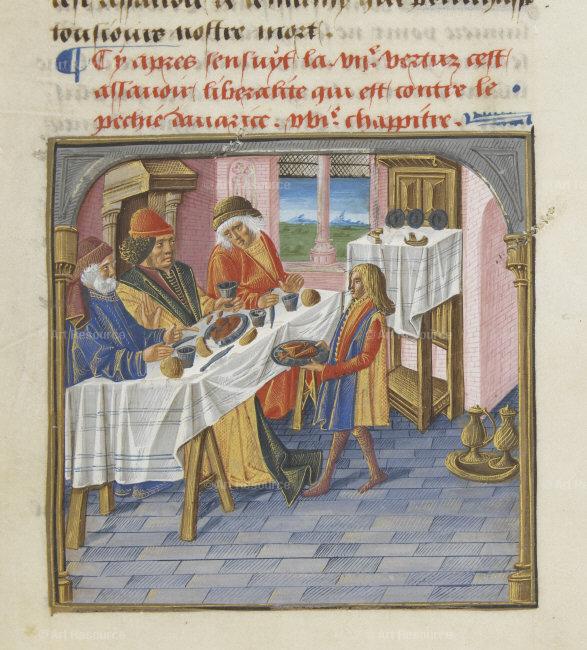 tousiours nostre mort.
Cy apres sensuyt la vii.e vertuz cest
assauoir liberalite qui est contre le
pechie dauarice. xvi.e chappitre.
© Art Resource